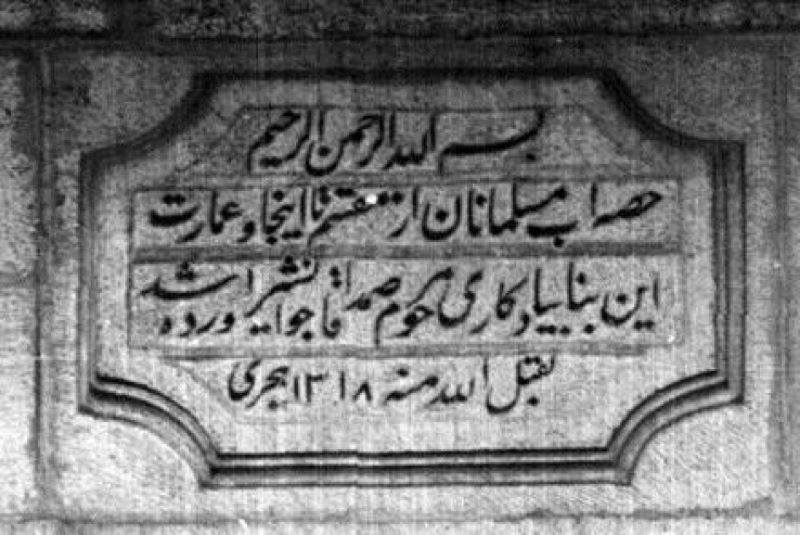 بسم الله الرحمن الرحیم
حصه اب مسلمانان از تقسیم تا اینجا و عمارت
این بنا بیادکاری مرحوم صمد اقا جوانشیر
تقبل الله منه ۱۳۱۸ هجری